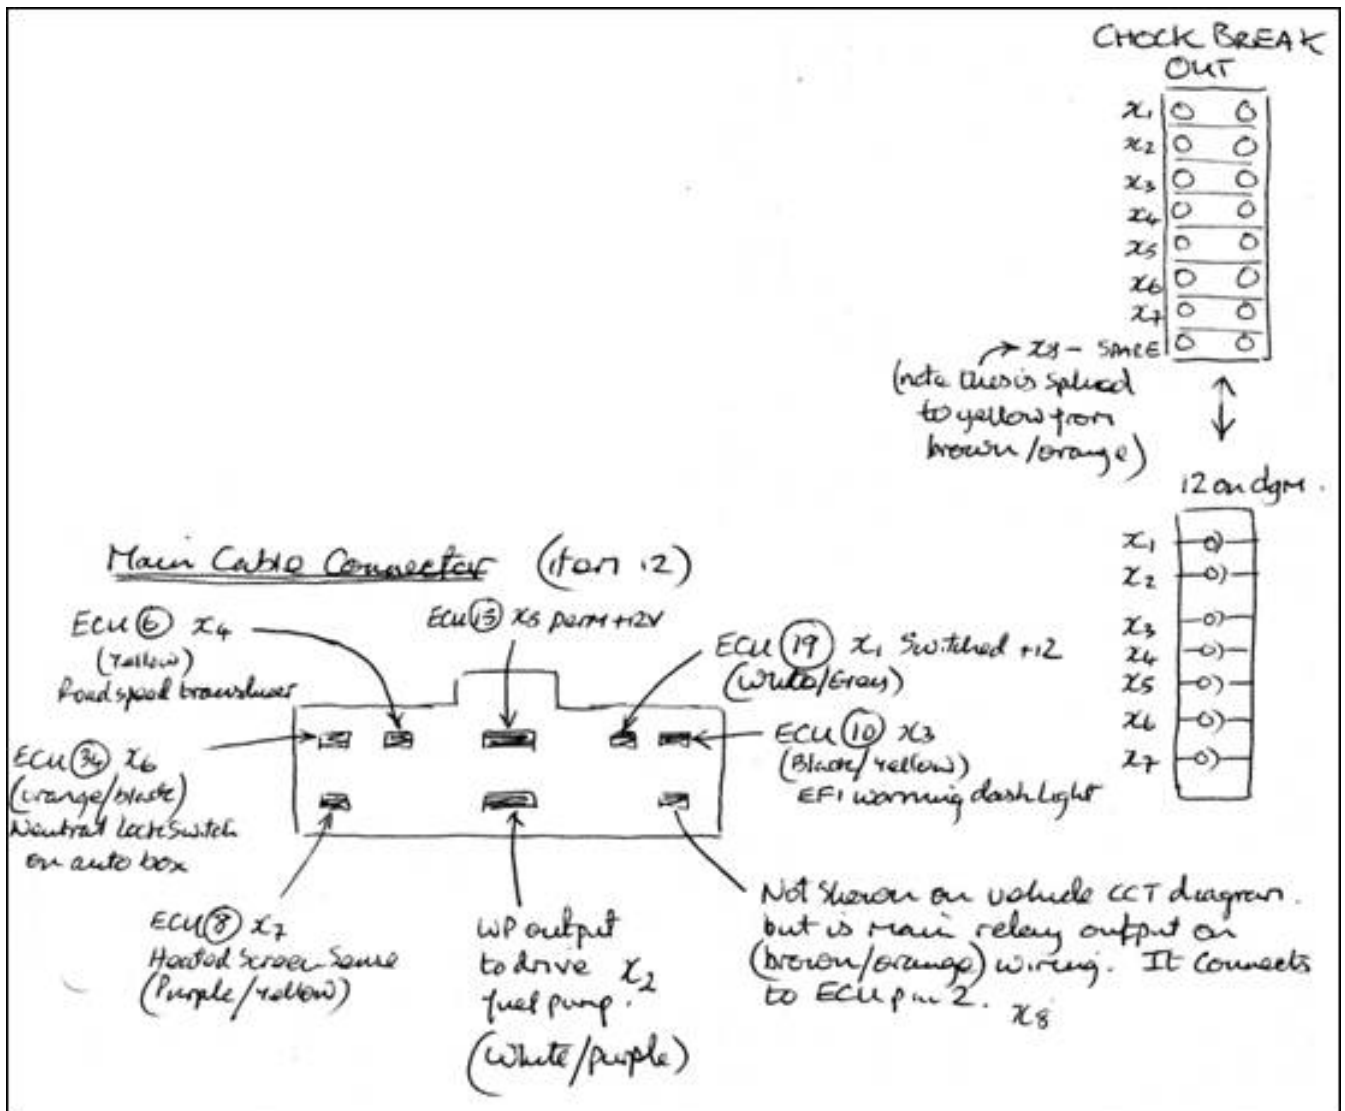 CHOCK BREAK
OUT
x1
x2
x3
x4
x5
x6
x7
x8 - SPARE
(note this is spliced
to yellow from
brown/orange)
12 on dgm.
x1
x2
x3
x4
x5
x6
x7
Main Cable Connector (item 12)
ECU 6 x4
(Yellow)
Road speed transducer
ECU 15 x5 perm +12V
ECU 19 x1 Switched +12
(White/Grey)
ECU 10 x3
(Black/Yellow)
EFI warning dash light
ECU 34 x6
(orange/black)
Neutral lock switch
on auto box
ECU 8 x7
Heated Screen Sense
(Purple/Yellow)
WP output
to drive x2
fuel pump.
(White/purple)
Not shown on vehicle CCT diagram.
but is main relay output on
(brown/orange) wiring. It connects
to ECU pin 2. x8